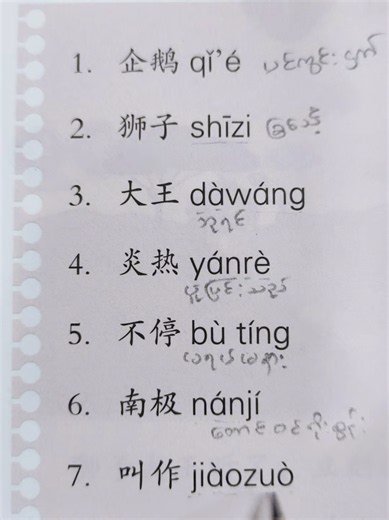 1. 企鹅 qǐ'é ပင်ကွင်းငှက်
2. 狮子 shīzi ခြင်္သေ့
3. 大王 dàwáng
ဘုရင်
4. 炎热 yánrè
ပူပြင်းသည်
5. 不停 bù tíng
6. 南极 nánjí
တောင်ဝင်ရိုးစွန်း
7. 叫作 jiàozuò